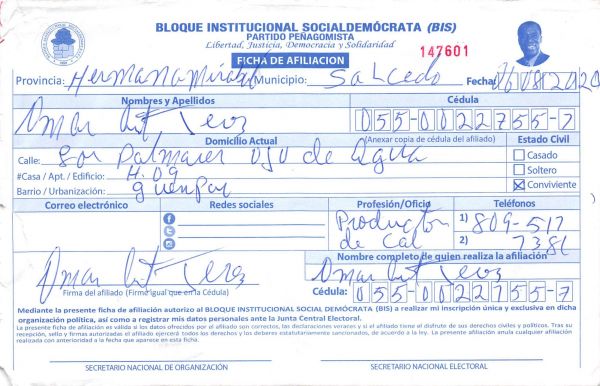 BLOQUE INSTITUCIONAL SOCIALDEMÓCRATA (BIS)
PARTIDO PEÑAGOMISTA
Libertad, Justicia, Democracia y Solidaridad
147601
FICHA DE AFILIACION
Provincia: Hermanas Mirabal Municipio: Salcedo Fecha
Nombres y Apellidos Cédula
Omar 055-0022755-7
Domicilio Actual (Anexar copia de cédula del afiliado) Estado Civil
Calle: Palmares ojo de Agua Casado
#Casa / Apt. / Edificio: H. 09 Soltero
Barrio / Urbanización: Conviviente
Correo electrónico Redes sociales Profesión/Oficio Teléfonos
Productor de Cal
1) 809-517
2) 7381
Nombre completo de quien realiza la afiliación
Omar Omar
Firma del afiliado (Firme igual que en la Cédula) Cédula: 055-0022755-7
Mediante la presente ficha de afiliación autorizo al BLOQUE INSTITUCIONAL SOCIAL DEMÓCRATA (BIS) a realizar mi inscripción única y exclusiva en dicha
organización política, así como a registrar mis datos personales ante la Junta Central Electoral.
La presente ficha de afiliación es válida si los datos ofrecidos por el afiliado son correctos, las declaraciones veraces y si el afiliado tiene el disfrute de sus derechos civiles y políticos. Tras su
recepción, sello y firmas autorizadas el afiliado ejercerá todos los derechos y los deberes estatutariamente sancionados, de acuerdo a la ley. La presente afiliación anula cualquier afiliación
realizada con anterioridad a la fecha que aparece en esta ficha.
SECRETARIO NACIONAL DE ORGANIZACIÓN SECRETARIO NACIONAL ELECTORAL